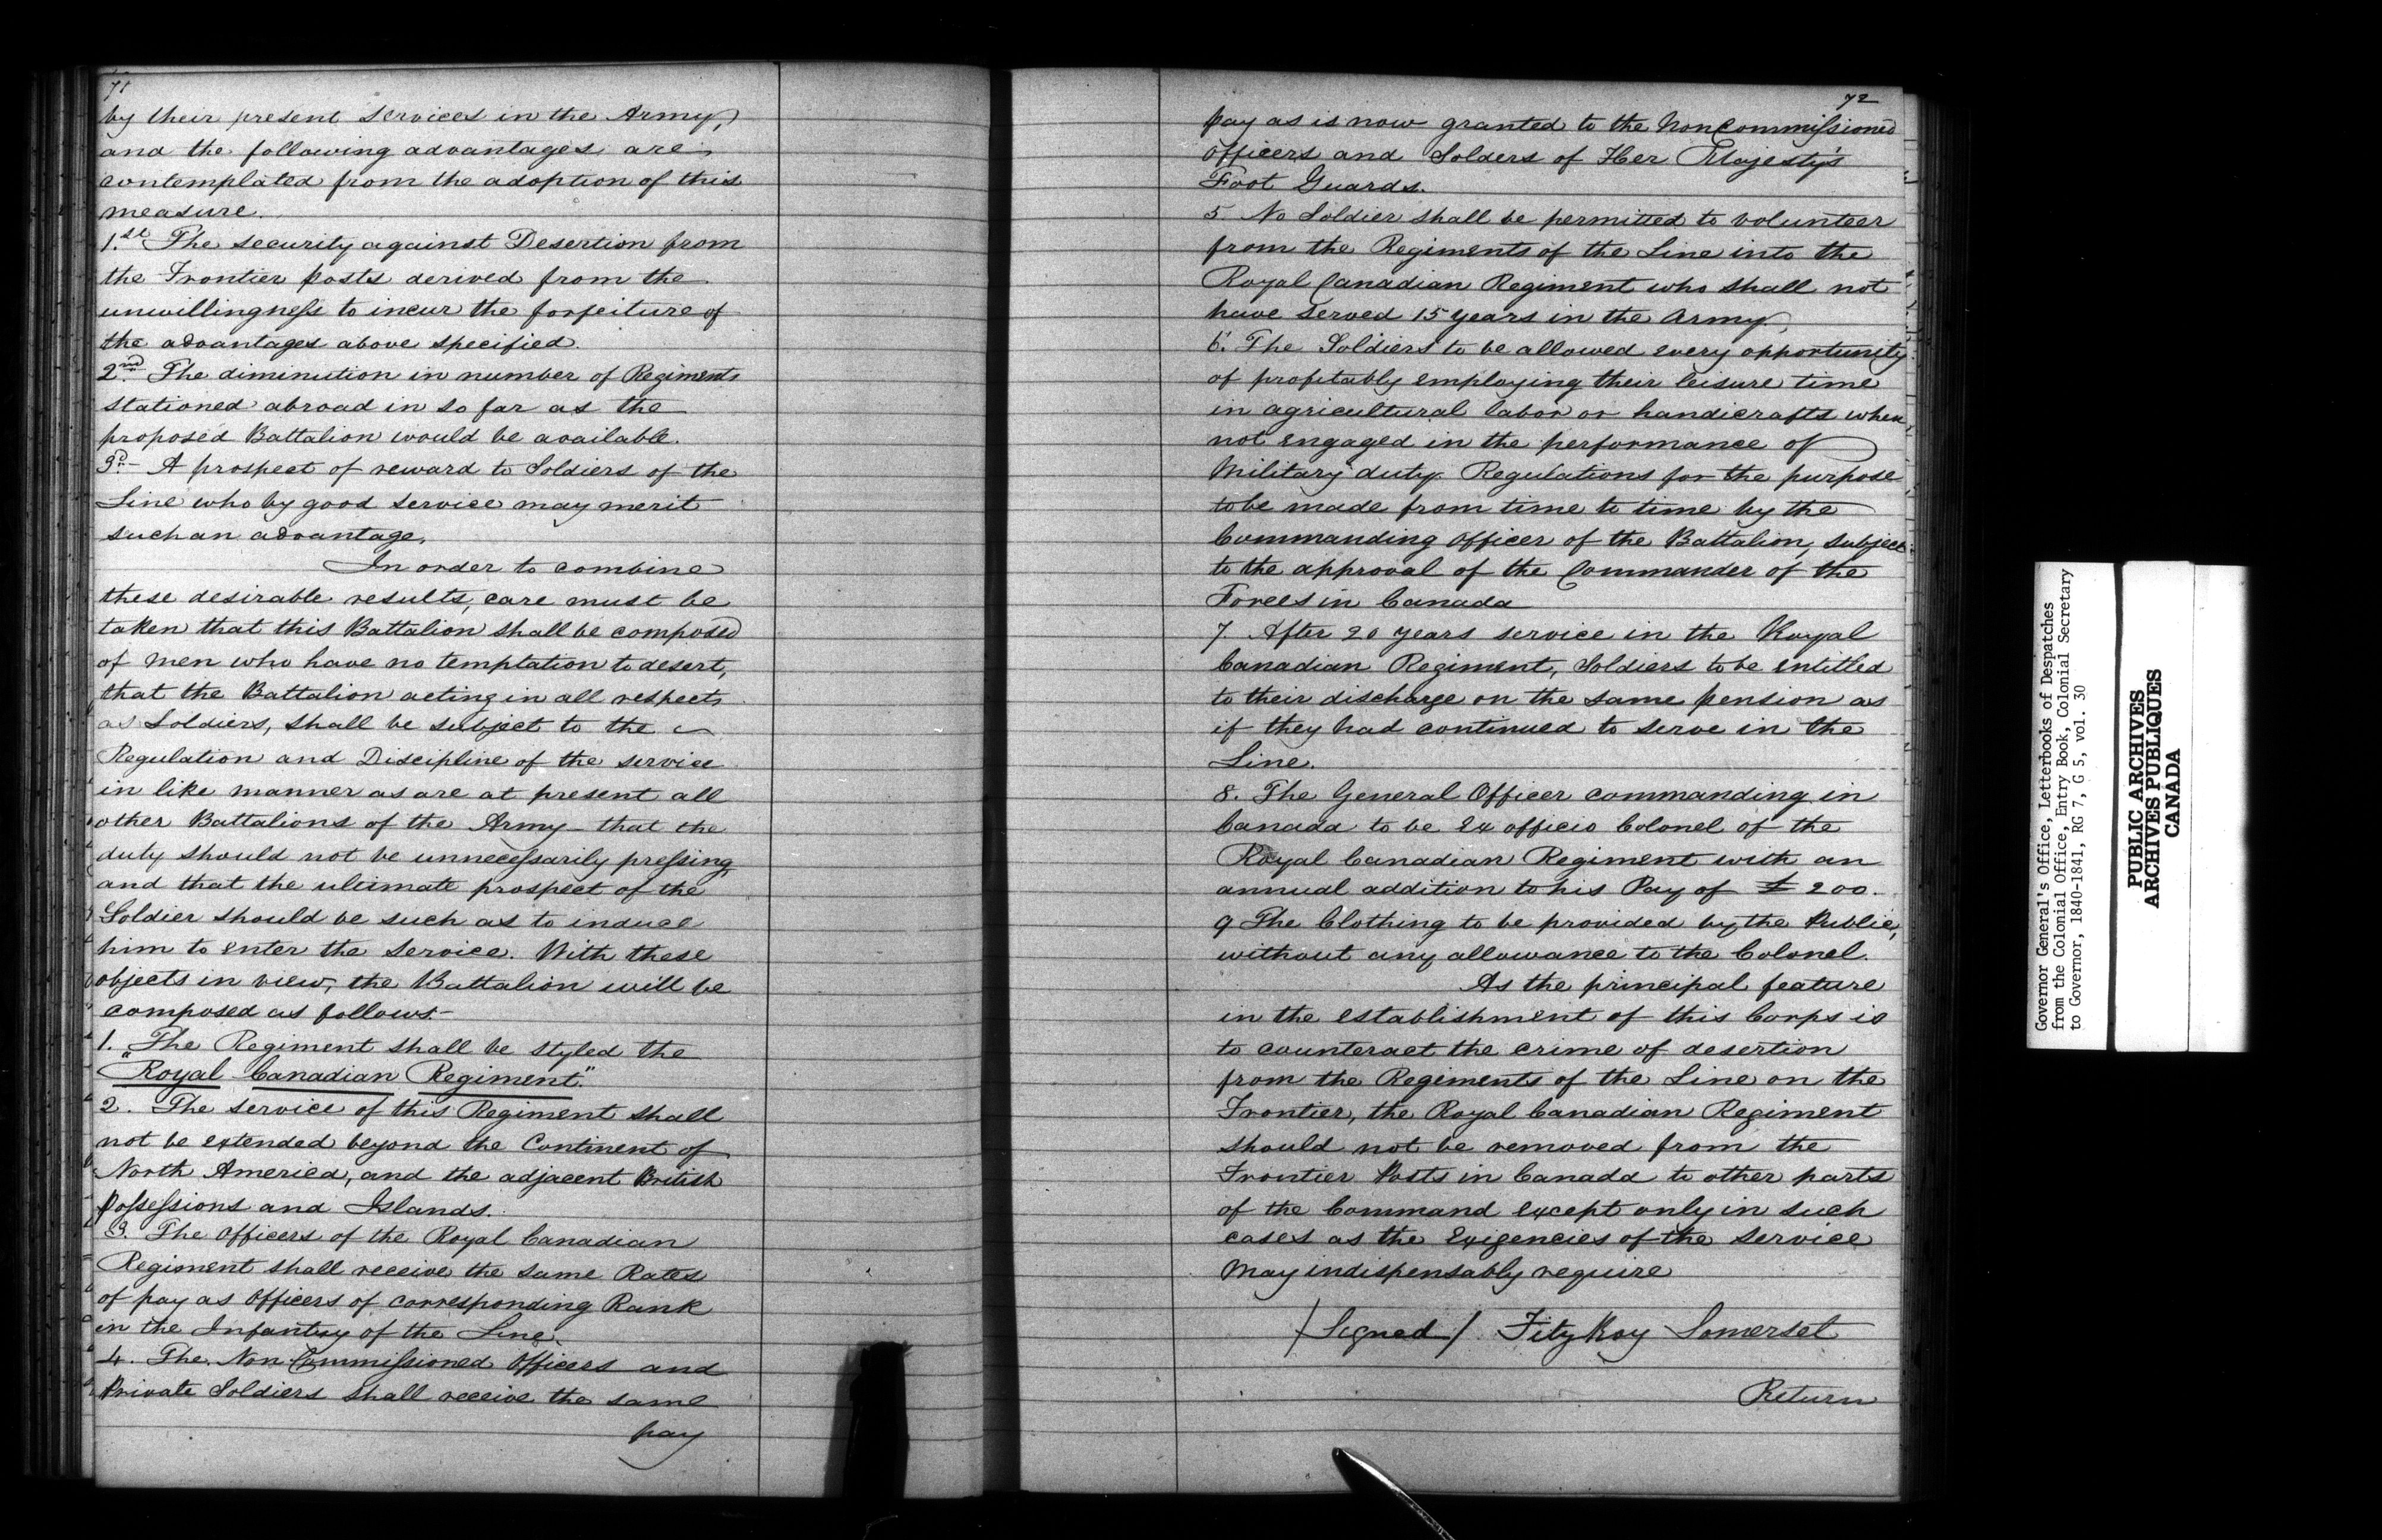 71
by their present services in the Army,
and the following advantages are
contemplated from the adoption of this
measure.
1.st The security against Desertion from
the Frontier posts derived from the
unwillingness to incur the forfeiture of
the advantages above specified.
2nd. The diminution in number of Regiments
stationed abroad in so far as the
proposed Battalion would be available.
3d.- A prospect of reward to Soldiers of the
Line who by good service may merit
such an advantage.
In order to combine
these desirable results, care must be
taken that this Battalion shall be composed
of men who have no temptation to desert,
that the Battalion acting in all respects
as Soldiers, shall be subject to the
Regulation and Discipline of the service
in like manner as are at present all
other Battalions of the Army - that the
duty should not be unnecessarily pressing,
and that the ultimate prospect of the
Soldier should be such as to induce
him to enter the Service. With these
objects in view, the Battalion will be
composed as follows.-
1. The Regiment shall be styled the
"Royal Canadian Regiment."
2. The service of this Regiment shall
not be extended beyond the Continent of
North America, and the adjacent British
Possessions and Islands.
3. The Officers of the Royal Canadian
Regiment shall receive the same Rates
of pay as Officers of corresponding Rank
in the Infantry of the Line.
4. The Non Commissioned Officers and
Private Soldiers shall receive the same
pay
72
pay as is now granted to the Non Commissioned
Officers and Solders of Her Majesty's
Foot Guards.
5. No Soldier shall be permitted to volunteer
from the Regiments of the Line into the
Royal Canadian Regiment who shall not
have served 15 years in the Army.
6. The Soldiers to be allowed every opportunity
of profitably employing their leisure time
in agricultural labor or handicrafts when
not engaged in the performance of
Military duty. Regulations for the purpose
to be made from time to time by the
Commanding Officer of the Battalion, subject
to the approval of the Commander of the
Forces in Canada
7. After 20 years service in the Royal
Canadian Regiment, Soldiers to be entitled
to their discharge on the same pension as
if they had continued to serve in the
Line.
8. The General Officer commanding in
Canada to be Ex officio Colonel of the
Royal Canadian Regiment with an
annual addition to his Pay of £200.
9 The Clothing to be provided by the Public,
without any allowance to the Colonel.
As the principal feature
in the establishment of this Corps is
to counteract the crime of desertion
from the Regiments of the Line on the
Frontier, the Royal Canadian Regiment
should not be removed from the
Frontier Posts in Canada to other parts
of the Command except only in such
cases as the Exigencies of the Service
may indispensably require
/Signed/ FitzRoy Somerset
Return
Governor General's Office, Letterbooks of Despatches
from the Colonial Office, Entry Book, Colonial Secretary
to Governor, 1840-1841, RG 7, G 5, vol. 30
PUBLIC ARCHIVES
ARCHIVES PUBLIQUES
CANADA